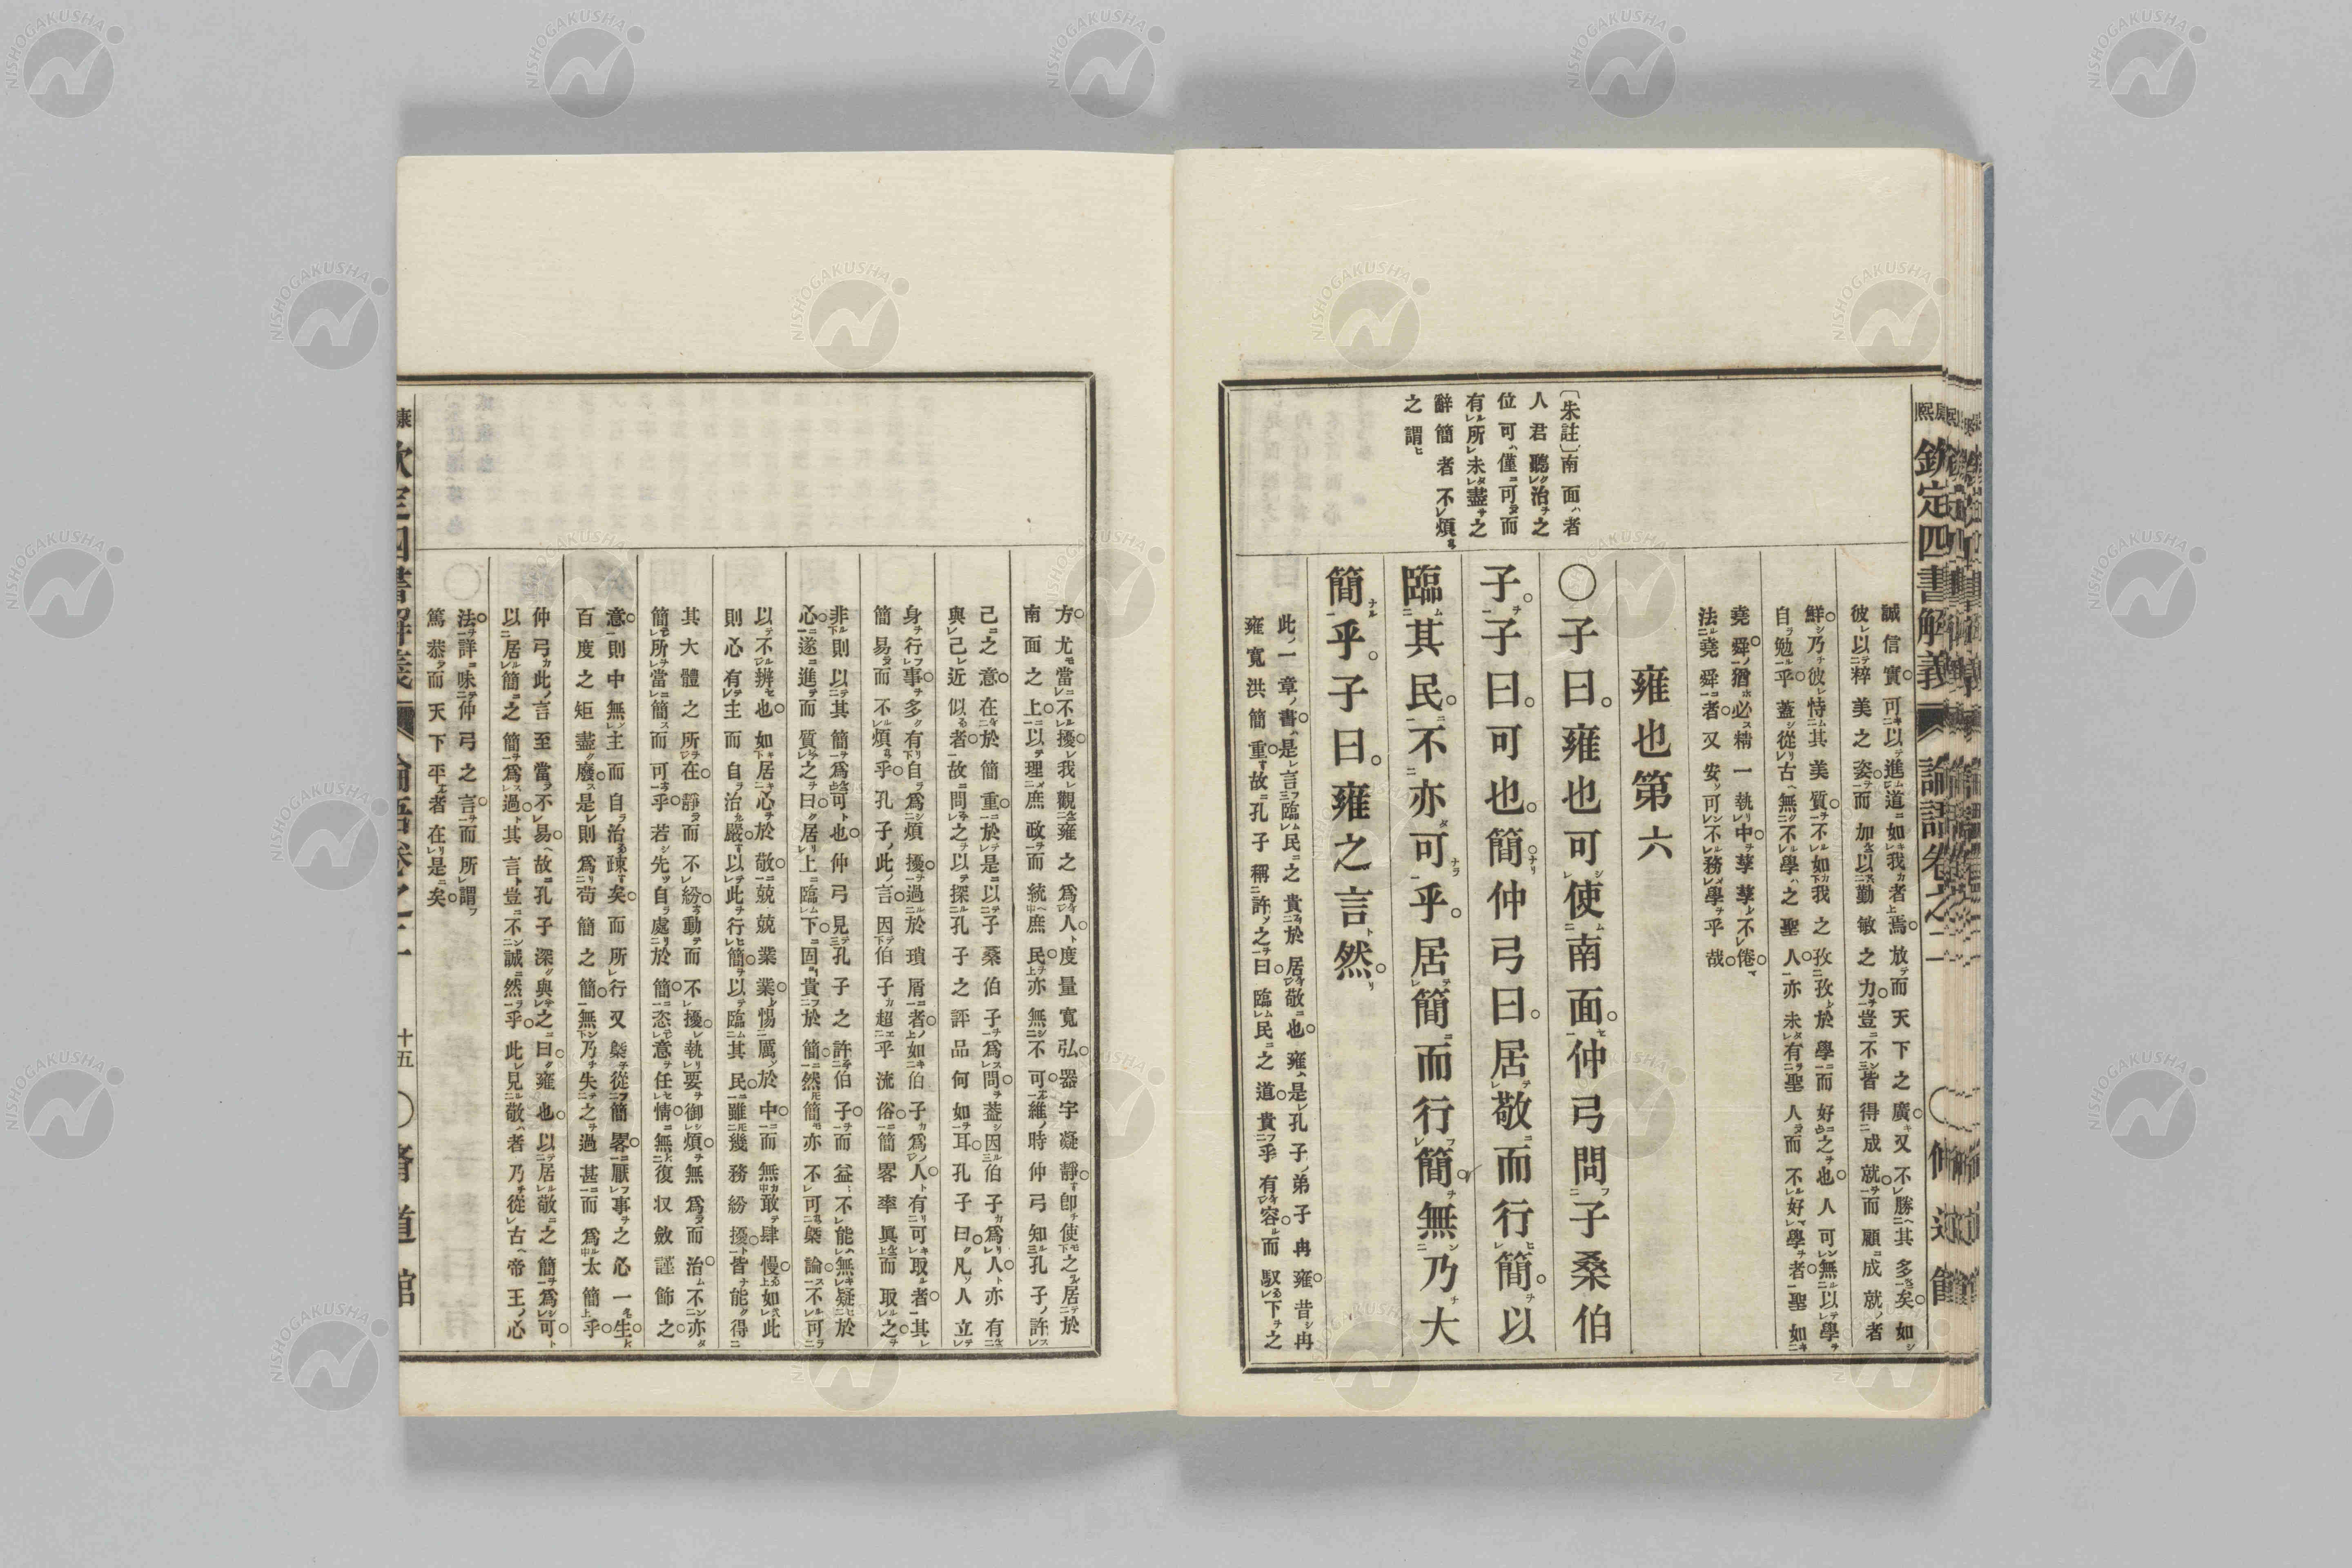 誠信實可以進道如我者焉放而天下之廣又不勝其多矣如
彼以粹美之姿而加以勤敏之力豈不皆得成就而顧成就者
鮮乃彼恃其美質不如我之孜孜於學而好之也人可無以學
自勉乎蓋從古無不學之聖人亦未有聖人而不好學者聖如
堯舜猶必精一執中孳孳不倦
法堯舜者又安可不務學乎哉
雍也第六
〔朱註〕南面者
人君聽治之
位可僅可而
有所未盡之
辭簡者不煩
之謂
〇子曰雍也可使南面仲弓問子桑伯
子子曰可也簡仲弓曰居敬而行簡以
臨其民不亦可乎居簡而行簡無乃大
簡乎子曰雍之言然
此一章書是言臨民之貴於居敬也雍是孔子弟子冉雍昔冉
雍寬洪簡重故孔子稱許之曰臨民之道貴乎有容而馭下之
方尤當不擾我觀雍之為人度量寬弘器宇凝靜卽使之居於
南面之上以理庶政而統庶民亦無不可維時仲弓知孔子許
己之意在於簡重於是以子桑伯子為問蓋因伯子為人亦有
與己近似者故問之以探孔子之評品何如耳孔子曰凡人立
身行事多有自為煩擾過於瑣屑者如伯子為人有可取者其
簡易而不煩乎孔子此言因伯子超乎流俗簡畧率眞而取之
非則以其簡為盡可也仲弓見孔子之許伯子而益不能無疑於
心遂進而質之曰居上臨下固貴於簡然簡亦不可槩論不可
以不辨也如居心於敬兢兢業業惕厲於中而無敢肆慢如此
則心有主而自治嚴以此行簡以臨其民雖幾務紛擾皆能得
其大體之所在靜而不紛動而不擾執要御煩無為而治不亦
簡所當簡而可乎若先自處於簡恣意任情無復収斂謹飾之
意則中無主而自治疎矣而所行又槩從簡畧厭事之心一生
百度之矩盡廢是則為苟簡之簡無乃失之過甚而為太簡乎
仲弓此言至當不易故孔子深與之曰雍也以居敬之簡為可
以居簡之簡為過其言豈不誠然乎此見敬者乃從古帝王心
法詳味仲弓之言而所謂
篤恭而天下平者在是矣
欽定四書解義
論語卷之二
十五
〇脩道館
NISHOGAKUSHA